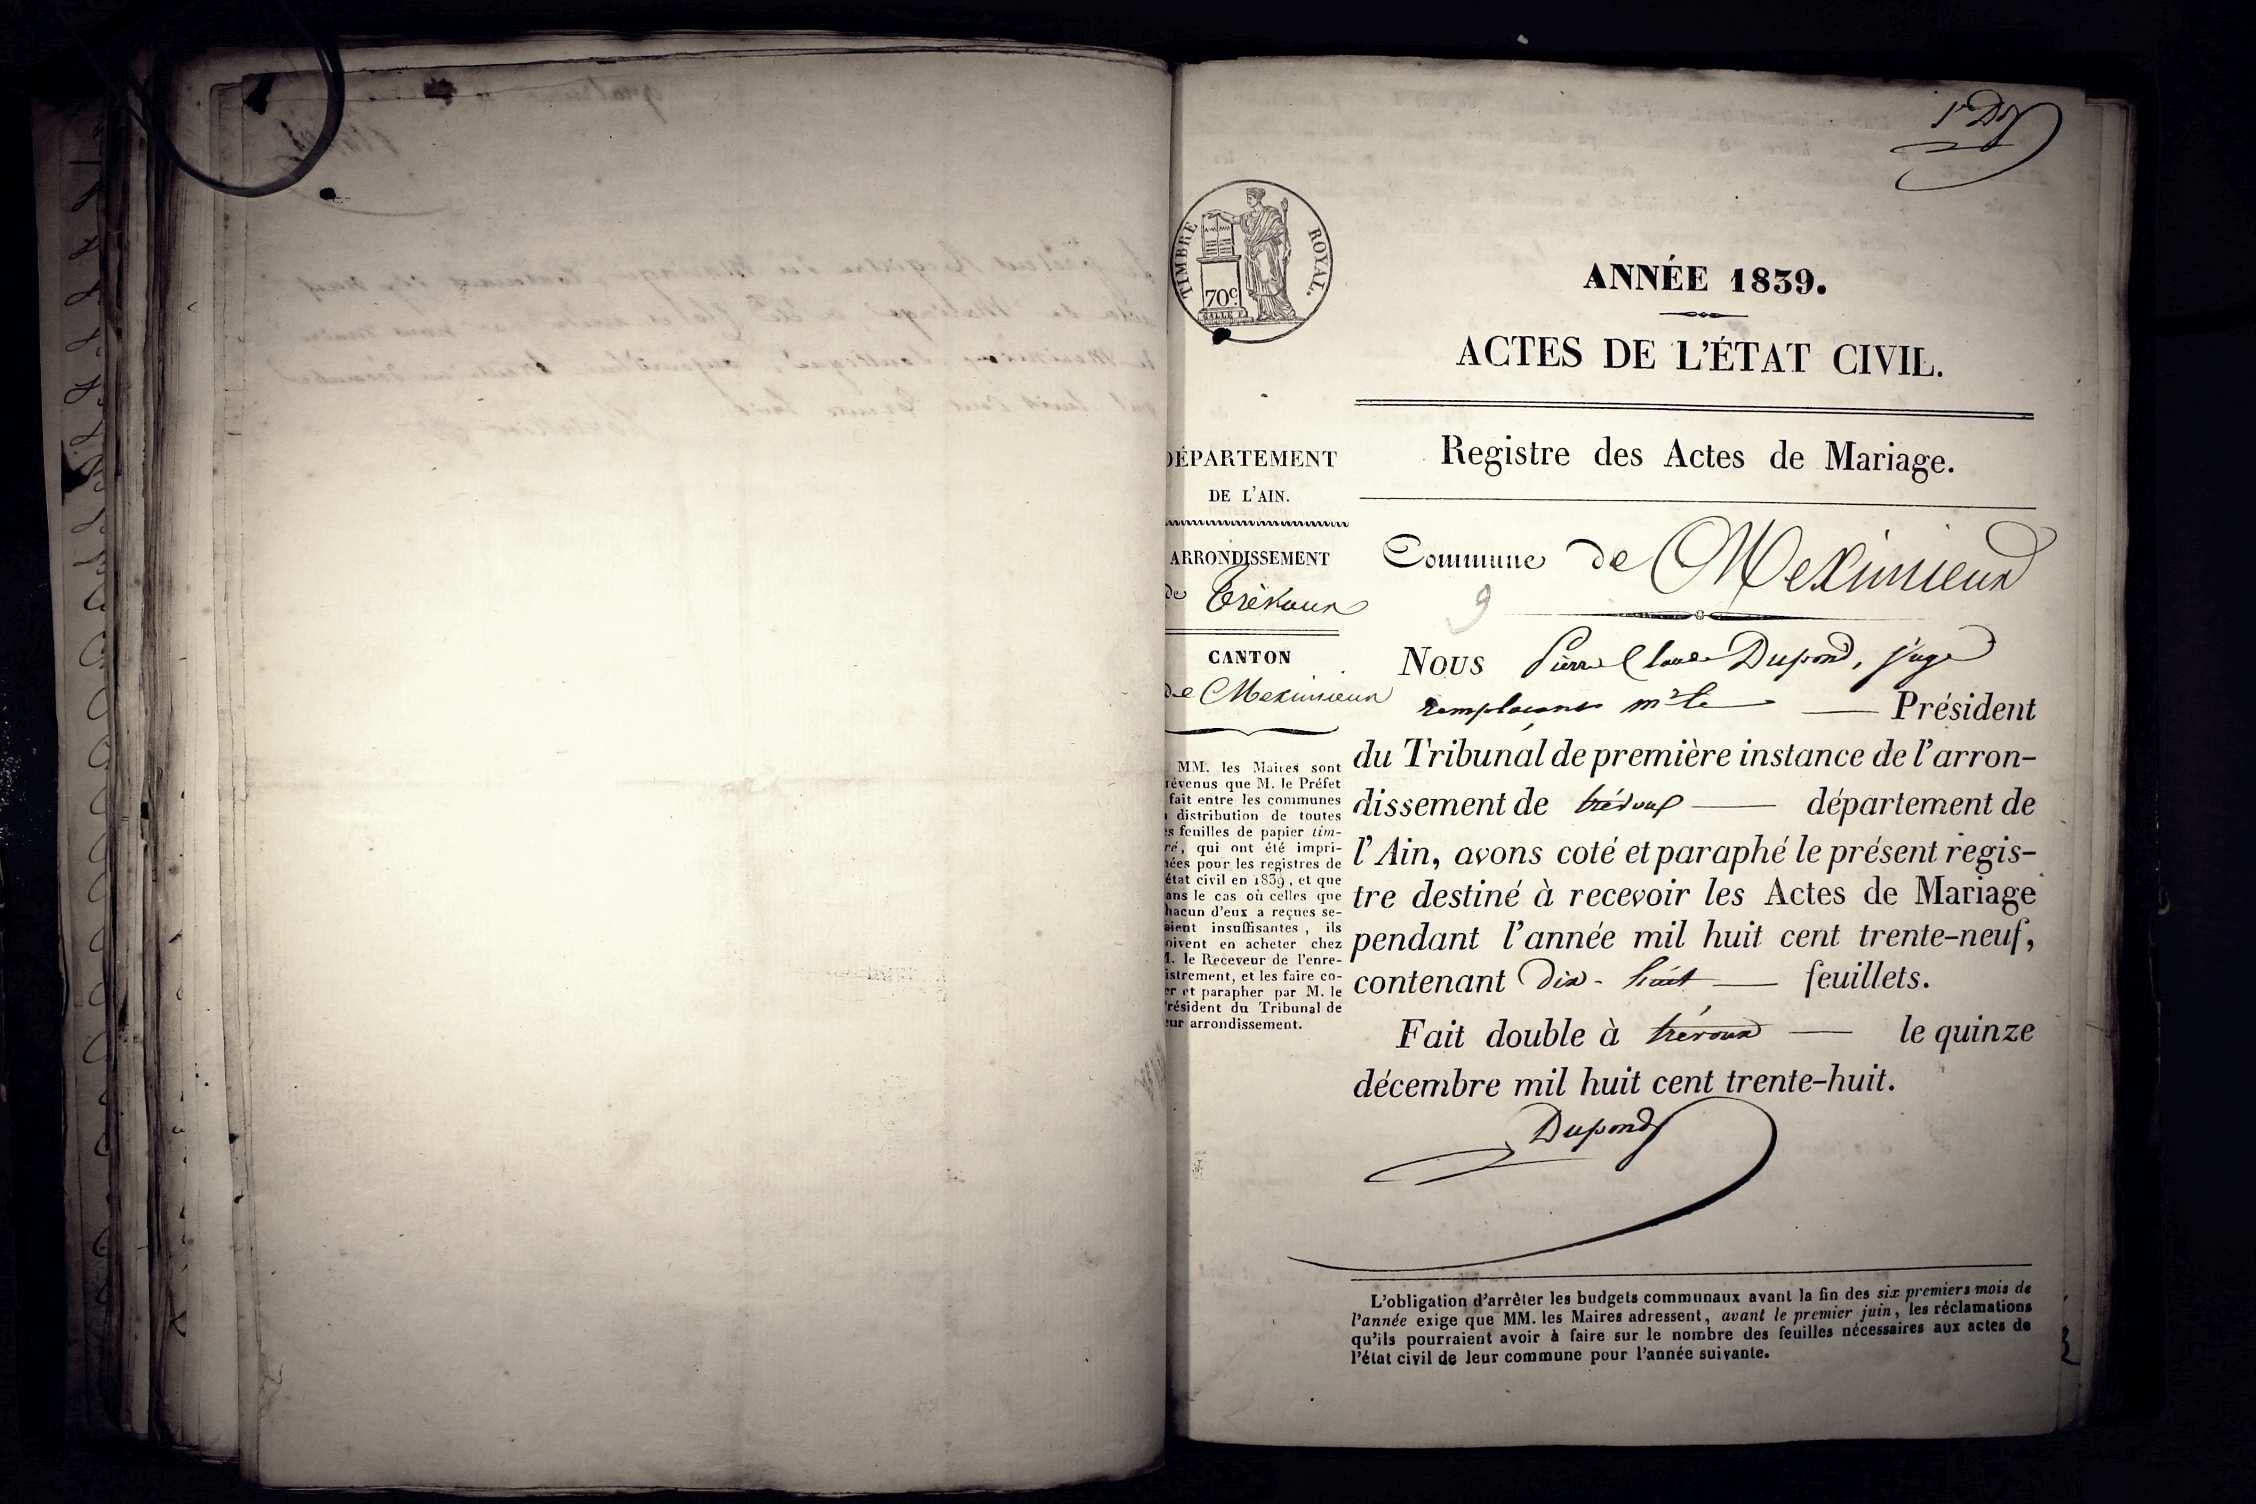 1er D
TIMBRE ROYAL.
70c.
ANNÉE 1839.
ACTES DE L'ÉTAT CIVIL.
Registre des Actes de Mariage.
DÉPARTEMENT
DE L'AIN.
ARRONDISSEMENT
de Trévoux
CANTON
de Meximieux
MM. les Maires sont
révenus que M. le Préfet
fait entre les communes
distribution de toutes
es feuilles de papier tim-
ré, qui ont été impri-
nées pour les registres de
état civil en 1839, et que
ans le cas où celles que
hacun d'eux a reçues se-
aient insuffisantes, ils
oivent en acheter chez
M. le Receveur de l'enre-
istrement, et les faire co-
er et parapher par M. le
résident du Tribunal de
eur arrondissement.
Commune de Meximieux
9
Nous Pierre Claude Dupond, juge
remplaçant mr le Président
du Tribunal de première instance de l'arron-
dissement de trévoux département de
l'Ain, avons coté et paraphé le présent regis-
tre destiné à recevoir les Actes de Mariage
pendant l'année mil huit cent trente-neuf,
contenant Dix-huit feuillets.
Fait double à trévoux le quinze
décembre mil huit cent trente-huit.
Dupond
L'obligation d'arrêter les budgets communaux avant la fin des six premiers mois de
l'année exige que MM. les Maires adressent, avant le premier juin, les réclamations
qu'ils pourraient avoir à faire sur le nombre des feuilles nécessaires aux actes de
l'état civil de leur commune pour l'année suivante.